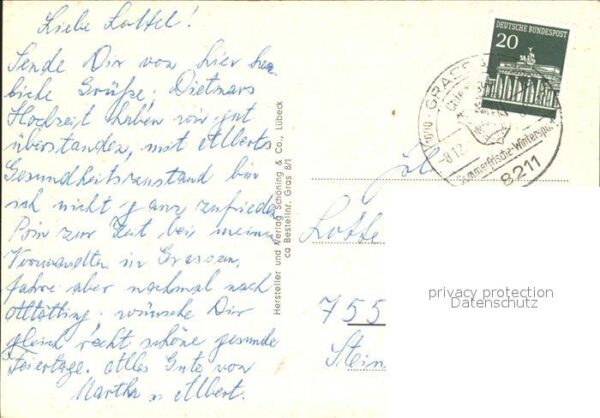 Liebe Lottel!
Sende Dir von hier herz
liche Grüße. Dietmars
Hochzeit haben wir gut
überstanden, mit Alberts
Gesundheitszustand bin
ich nicht ganz zufrieden
Bin zur Zeit bei meinen
Verwandten in Grassau,
fahre aber nochmal nach
Altötting. wünsche Dir
gleich recht schöne gesunde
Feiertage. Alles Gute von
Martha u Albert.
Hersteller und Verlag Schöning & Co., Lübeck
ca Bestellnr. Gras 8/1
DEUTSCHE BUNDESPOST
20
GRASSAU
Sommerfrische-Wintersport
8211
Lotte
755
Stein
privacy protection
Datenschutz